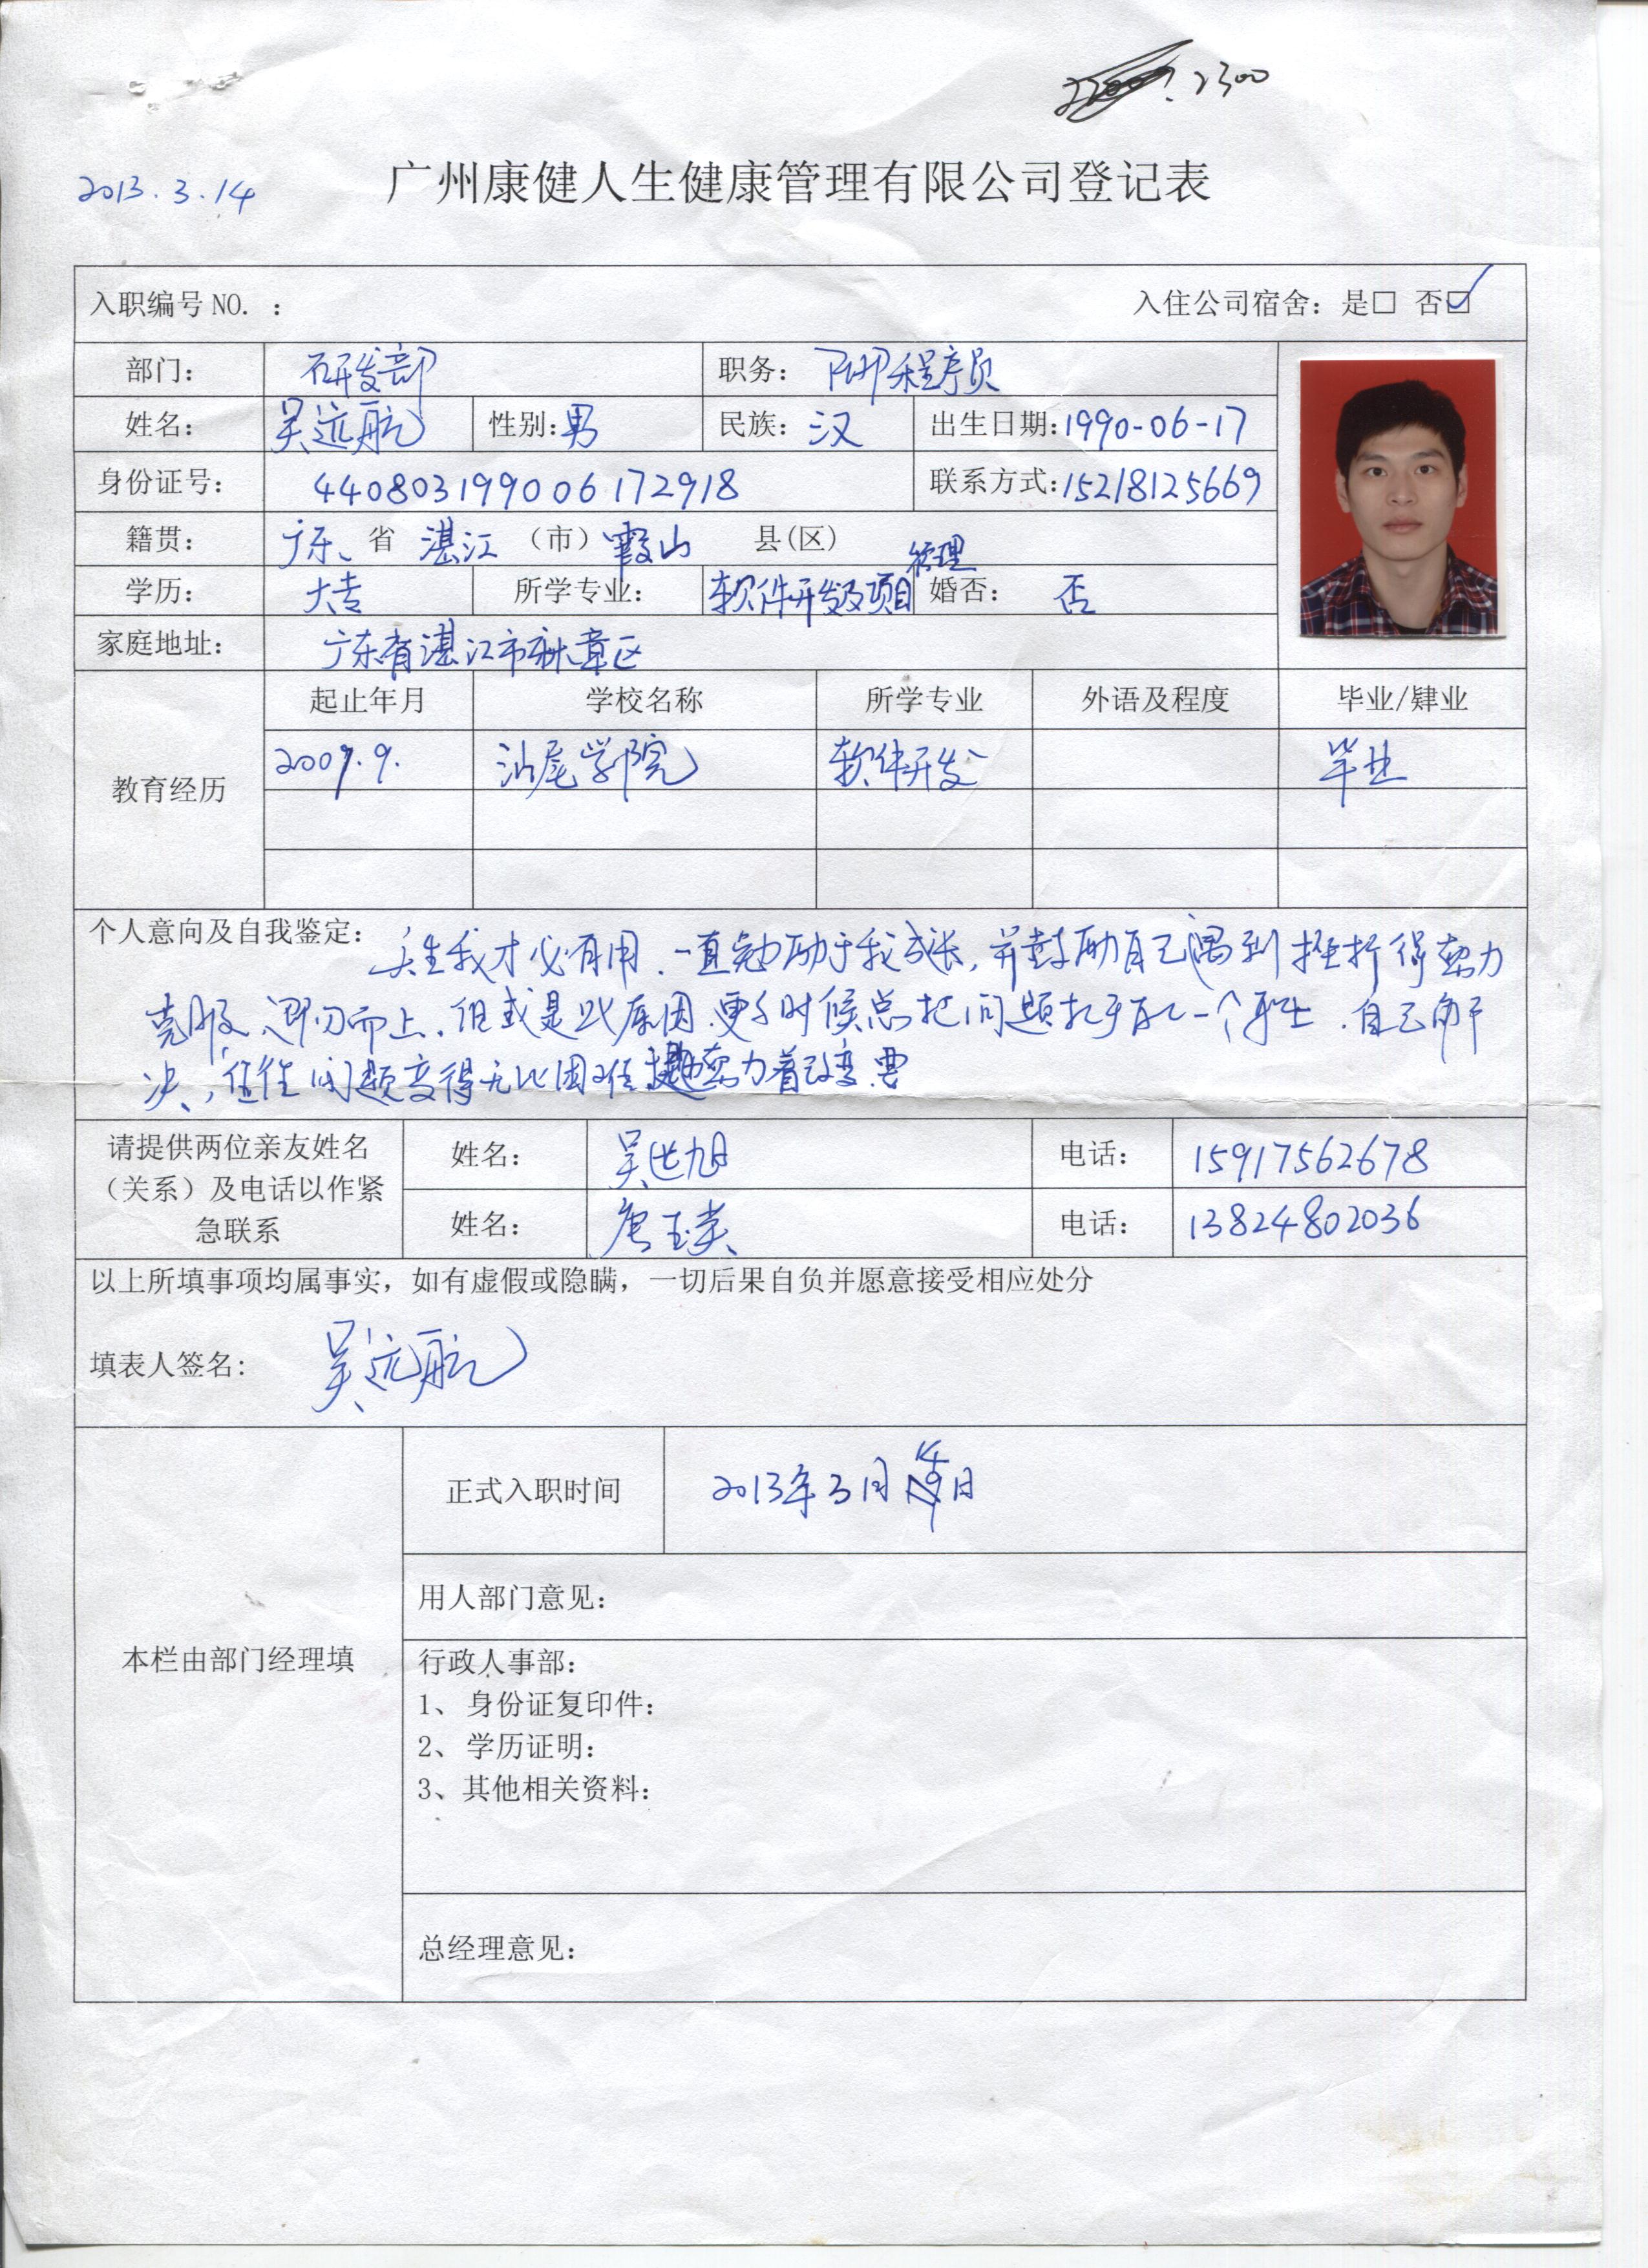 2300
2013.3.14
广州康健人生健康管理有限公司登记表
入职编号 NO. ： 入住公司宿舍：是□ 否☑
部门： 研发部 职务： PHP程序员
姓名： 吴远航 性别：男 民族：汉 出生日期：1990-06-17
身份证号： 440803199006172918 联系方式：15218125669
籍贯： 广东 省 湛江 （市）霞山 县(区)
学历： 大专 所学专业： 软件开发及项目管理 婚否： 否
家庭地址： 广东省湛江市麻章区
教育经历 起止年月 学校名称 所学专业 外语及程度 毕业/肄业
2009.9. 汕尾学院 软件开发 毕业
个人意向及自我鉴定： 天生我才必有用、一直勉励于我成长，并鼓励自己遇到挫折得努力
克服、迎刃而上、但或是此原因、更多时候总把问题 一个 自己解
决、，往往问题变得无比困难 努力着改变 要
请提供两位亲友姓名（关系）及电话以作紧急联系
姓名： 吴世旭 电话： 15917562678
姓名： 唐玉英 电话： 13824802036
以上所填事项均属事实，如有虚假或隐瞒，一切后果自负并愿意接受相应处分
填表人签名： 吴远航
本栏由部门经理填
正式入职时间 2013年3月14日
用人部门意见：
行政人事部：
1、 身份证复印件：
2、 学历证明：
3、其他相关资料：
总经理意见：